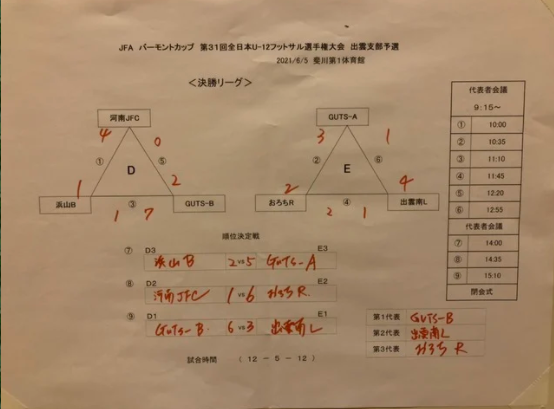 JFA バーモントカップ 第31回全日本U-12フットサル選手権大会 出雲支部予選
2021/6/5 斐川第1体育館
＜決勝リーグ＞
代表者会議
9:15～
① 10:00
② 10:35
③ 11:10
④ 11:45
⑤ 12:20
⑥ 12:55
代表者会議
⑦ 14:00
⑧ 14:35
⑨ 15:10
閉会式
河南JFC
4 0
① ⑤
D
1 2
浜山B ③ GUTS-B
1 7
GUTS-A
3 1
② ⑥
E
2 4
おろちR ④ 出雲南L
2 1
順位決定戦
⑦ D3 E3
浜山B 2 vs 5 GUTS-A
⑧ D2 E2
河南JFC 1 vs 6 おろちR
⑨ D1 E1
GUTS-B 6 vs 3 出雲南L
第1代表 GUTS-B
第2代表 出雲南L
第3代表 おろちR
試合時間 （ 12 － 5 － 12 ）